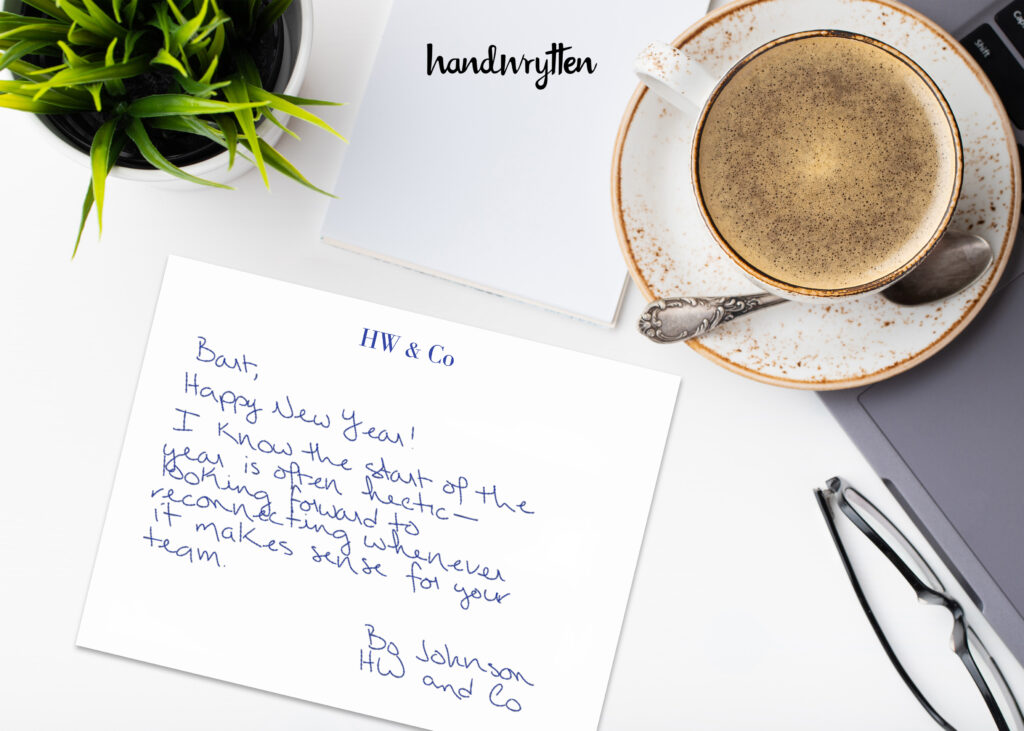 handwrytten
Caps
Shift
HW & Co
Bart,
Happy New Year!
I know the start of the
year is often hectic—
looking forward to
reconnecting whenever
it makes sense for your
team.
Bo Johnson
HW and Co